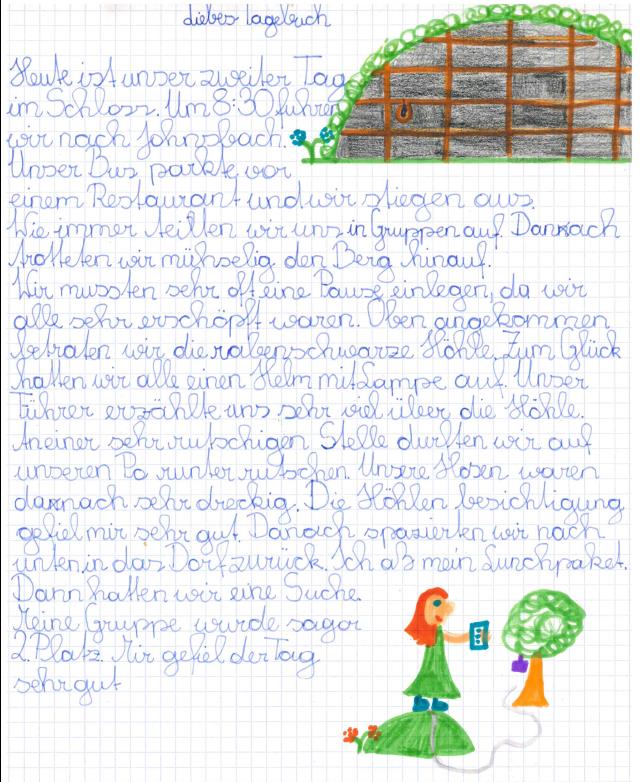 Liebes Tagebuch
Heute ist unser zweiter Tag
im Schloss. Um 8:30 fuhren
wir nach Johnsbach.
Unser Bus parkte vor
einem Restaurant und wir stiegen aus.
Wie immer teilten wir uns in Gruppen auf. Dannach
trotteten wir mühselig den Berg hinauf.
Wir mussten sehr oft eine Pause einlegen, da wir
alle sehr erschöpft waren. Oben angekommen
betraten wir die rabenschwarze Höhle. Zum Glück
hatten wir alle einen Helm mit Lampe auf. Unser
Führer erzählte uns sehr viel über die Höhle.
An einer sehr rutschigen Stelle durften wir auf
unseren Po runter rutschen. Unsere Hosen waren
dannach sehr dreckig. Die Höhlen besichtigung
gefiel mir sehr gut. Danach spazierten wir nach
unten, in das Dorf zurück. Ich aß mein Lunchpaket.
Dann hatten wir eine Suche.
Meine Gruppe wurde sogar
2. Platz. Mir gefiel der Tag
sehr gut